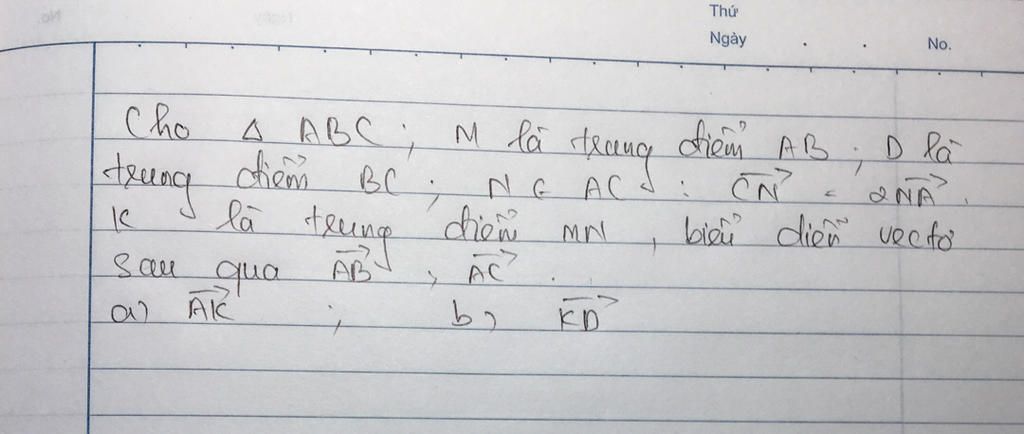 Thứ
Ngày . . No.
Cho Δ ABC ; M là trung điểm AB ; D là
trung điểm BC ; N ∈ AC : \overrightarrow{CN} = 2\overrightarrow{NA} .
K là trung điểm MN , biểu diễn vectơ
sau qua \overrightarrow{AB} , \overrightarrow{AC} .
a) \overrightarrow{AK} ; b) \overrightarrow{KD}